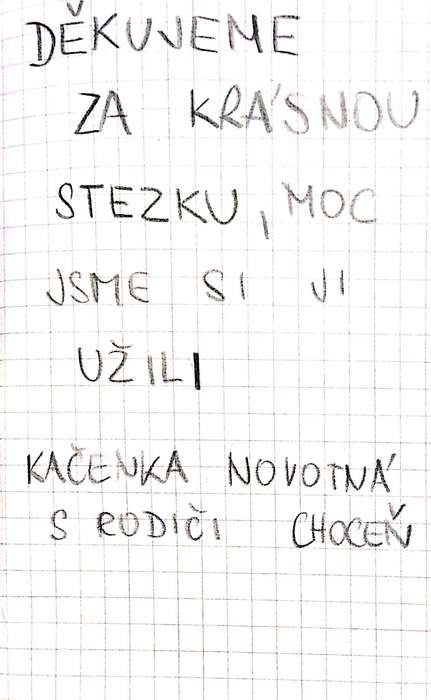 DĚKUJEME
ZA KRÁSNOU
STEZKU, MOC
JSME SI JI
UŽILI
KAČENKA NOVOTNÁ
S RODIČI CHOCEŇ